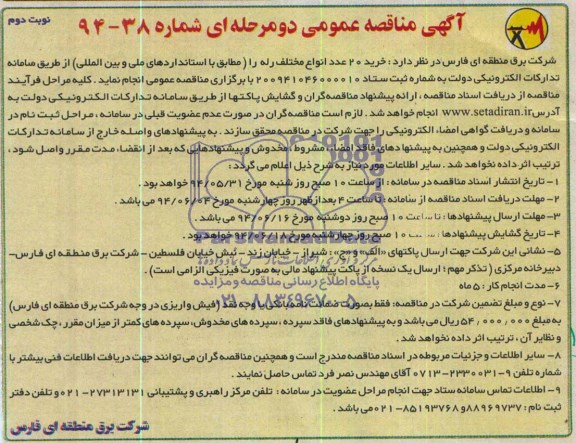 نوبت دوم
آگهی مناقصه عمومی دومرحله ای شماره ۳۸-۹۴
شرکت برق منطقه ای فارس در نظر دارد : خرید ۲۰ عدد انواع مختلف رله را ( مطابق با استانداردهای ملی و بین المللی ) از طریق سامانه
تدارکات الکترونیکی دولت به شماره ثبت ستاد ۲۰۰۹۴۱۰۴۶۰۰۰۰۱۰ با برگزاری مناقصه عمومی انجام نماید . کلیه مراحل فرآیند
مناقصه از دریافت اسناد مناقصه ، ارائه پیشنهاد مناقصه گران و گشایش پاکتها از طریق سامانه تدارکات الکترونیکی دولت به
آدرس www.setadiran.ir انجام خواهد شد . لازم است مناقصه گران در صورت عدم عضویت قبلی در سامانه ، مراحل ثبت نام در
سامانه و دریافت گواهی امضاء الکترونیکی را جهت شرکت در مناقصه محقق سازند . به پیشنهادهای واصله خارج از سامانه تدارکات
الکترونیکی دولت و همچنین به پیشنهادهای فاقد امضاء ، مشروط ، مخدوش و پیشنهادهایی که بعد از انقضاء مدت مقرر واصل شود ،
ترتیب اثر داده نخواهد شد . سایر اطلاعات مورد نیاز به شرح ذیل اعلام می گردد :
۱- تاریخ انتشار اسناد مناقصه در سامانه : از ساعت ۱۰ صبح روز شنبه مورخ ۹۴/۰۵/۳۱ خواهد بود .
۲- مهلت دریافت اسناد مناقصه از سامانه : تا ساعت ۴ بعدازظهر روز چهارشنبه مورخ ۹۴/۰۶/۰۴ می باشد .
۳- مهلت ارسال پیشنهادها : تا ساعت ۱۰ صبح روز دوشنبه مورخ ۹۴/۰۶/۱۶ می باشد .
۴- تاریخ گشایش پیشنهادها : ساعت ۱۰ صبح روز چهارشنبه مورخ ۹۴/۰۶/۱۸ خواهد بود .
۵- نشانی این شرکت جهت ارسال پاکتهای «الف» و «ج» : شیراز - خیابان زند - نبش خیابان فلسطین - شرکت برق منطقه ای فارس -
دبیرخانه مرکزی ( تذکر مهم : ارسال یک نسخه از پاکت پیشنهاد مالی به صورت فیزیکی الزامی است ) .
۶- مدت انجام کار : ۵ ماه
۷- نوع و مبلغ تضمین شرکت در مناقصه : فقط بصورت ضمانت نامه بانکی یا وجه نقد (فیش واریزی در وجه شرکت برق منطقه ای فارس)
به مبلغ ۵۴/۰۰۰/۰۰۰ ریال می باشد و به پیشنهادهای فاقد سپرده ، سپرده های مخدوش ، سپرده های کمتر از میزان مقرر ، چک شخصی
و نظایر آن ، ترتیب اثر داده نخواهد شد .
۸- سایر اطلاعات و جزئیات مربوطه در اسناد مناقصه مندرج است و همچنین مناقصه گران می توانند جهت دریافت اطلاعات فنی بیشتر با
شماره تلفن ۹-۲۳۳۰۰۳۱-۰۷۱۳ آقای مهندس نصر فرد تماس حاصل نمایند .
۹- اطلاعات تماس سامانه ستاد جهت انجام مراحل عضویت در سامانه : تلفن مرکز راهبری و پشتیبانی ۲۷۳۱۳۱۳۱-۰۲۱ و تلفن دفتر
ثبت نام : ۸۸۹۶۹۷۳۷ و ۸۵۱۹۳۷۶۸-۰۲۱ می باشد .
شرکت برق منطقه ای فارس
پایگاه اطلاع رسانی مناقصه و مزایده
۰۲۱-۸۸۳۴۹۶۷۰-۵